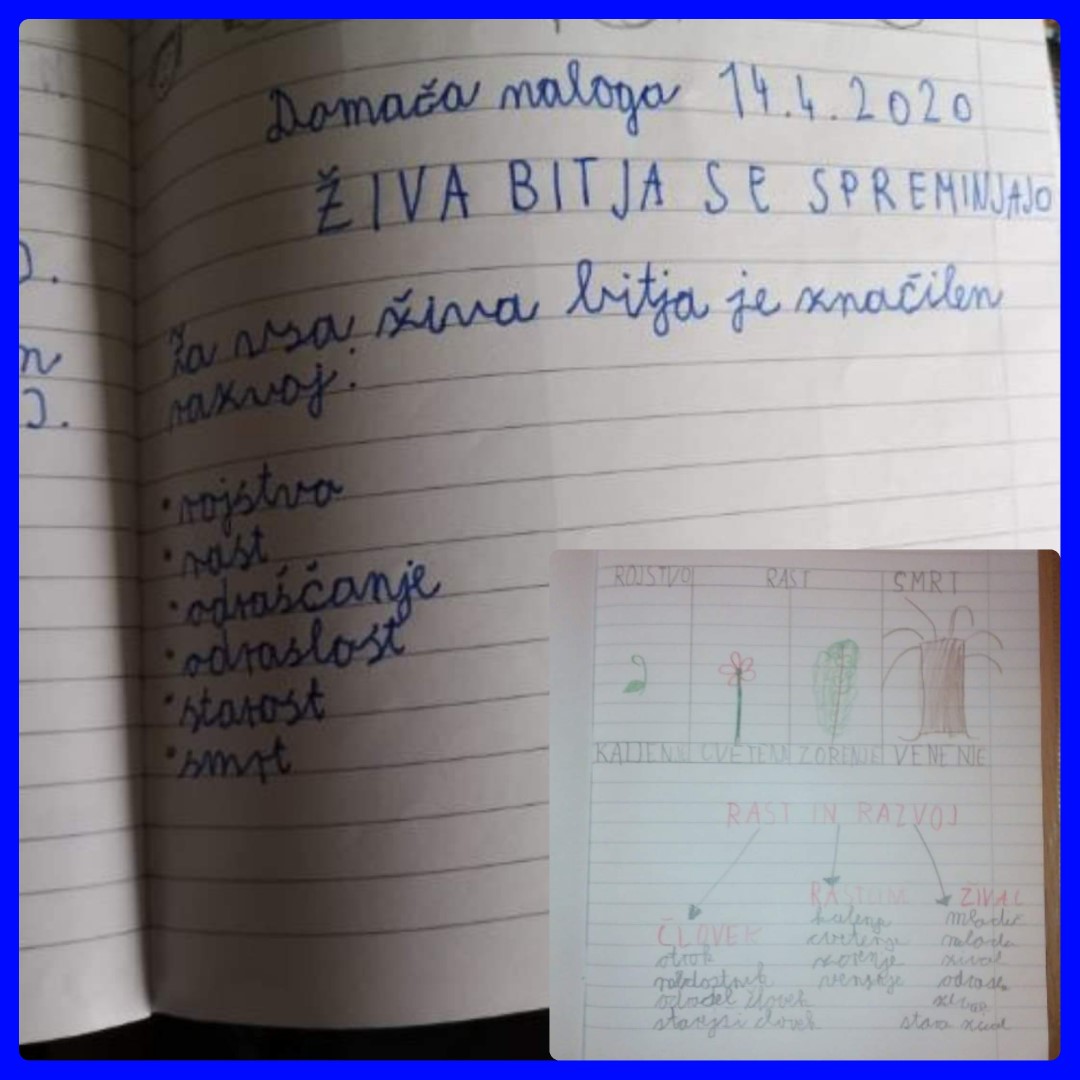 Domača naloga 14.4.2020
ŽIVA BITJA SE SPREMINJAJO
Za vsa živa bitja je značilen
razvoj:
• rojstvo
• rast
• odraščanje
• odraslost
• starost
• smrt
ROJSTVO RAST SMRT
ZORENJE VENENJE
RAST IN RAZVOJ
ČLOVEK ŽIVAL
otrok cvetenje mlada
zorenje žival
venenje
človek
starejši človek stara žival